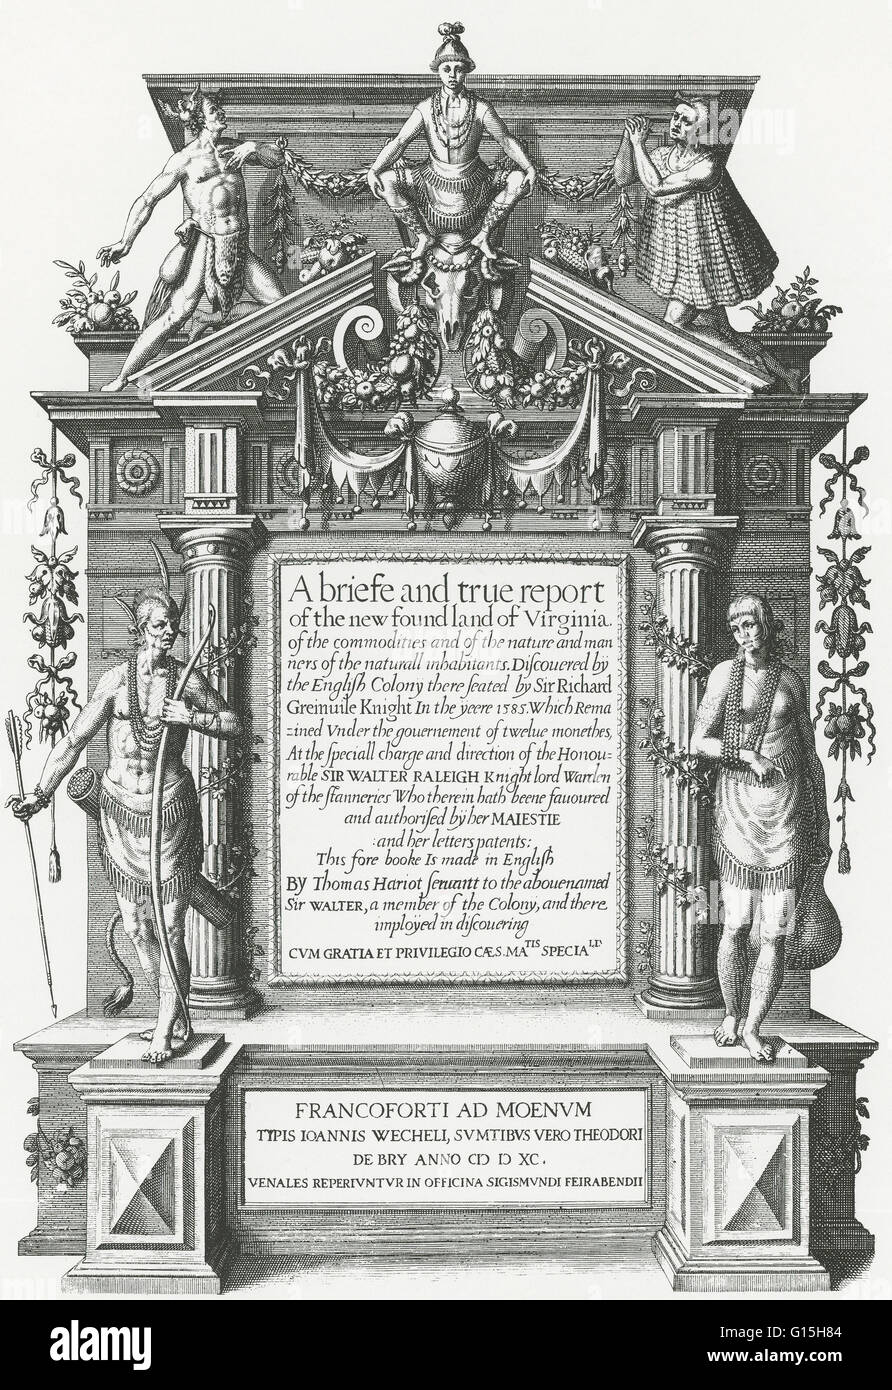 A briefe and true report
of the new found land of Virginia.
of the commodities and of the nature and man
ners of the naturall inhabitants. Discouered bÿ
the English Colonÿ there seated by Sir Richard
Greinuile Knight In the ÿeere 1585. Which Rema
ined Vnder the gouernement of twelue monethes,
At the speciall charge and direction of the Honou-
rable SIR WALTER RALEIGH Knight lord Warden
of the stanneries Who therein hath beene fauoured
and authorised bÿ her MAIESTIE
:and her letters patents:
This fore booke Is made in English
By Thomas Hariot seruant to the abouenamed
Sir WALTER, a member of the Colonÿ, and there
imploÿed in discouering
CVM GRATIA ET PRIVILEGIO CÆS. MATIS SPECIALD
FRANCOFORTI AD MOENVM
TYPIS IOANNIS WECHELI, SVMTIBVS VERO THEODORI
DE BRY ANNO CIƆ IƆ XC.
VENALES REPERIVNTVR IN OFFICINA SIGISMVNDI FEIRABENDII
alamy
alamy stock photo
G15H84
www.alamy.com